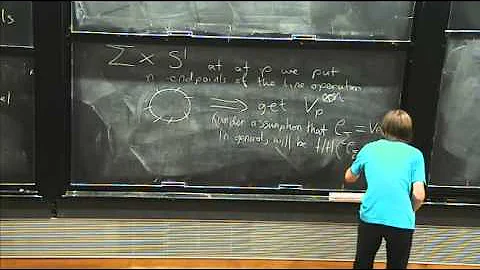 ls
el
Σ × S¹ at at p we put
n endpoints of the line operation
⟹ get V_p
(under assumption that C_- = Ve
In general, will be HH(C_-